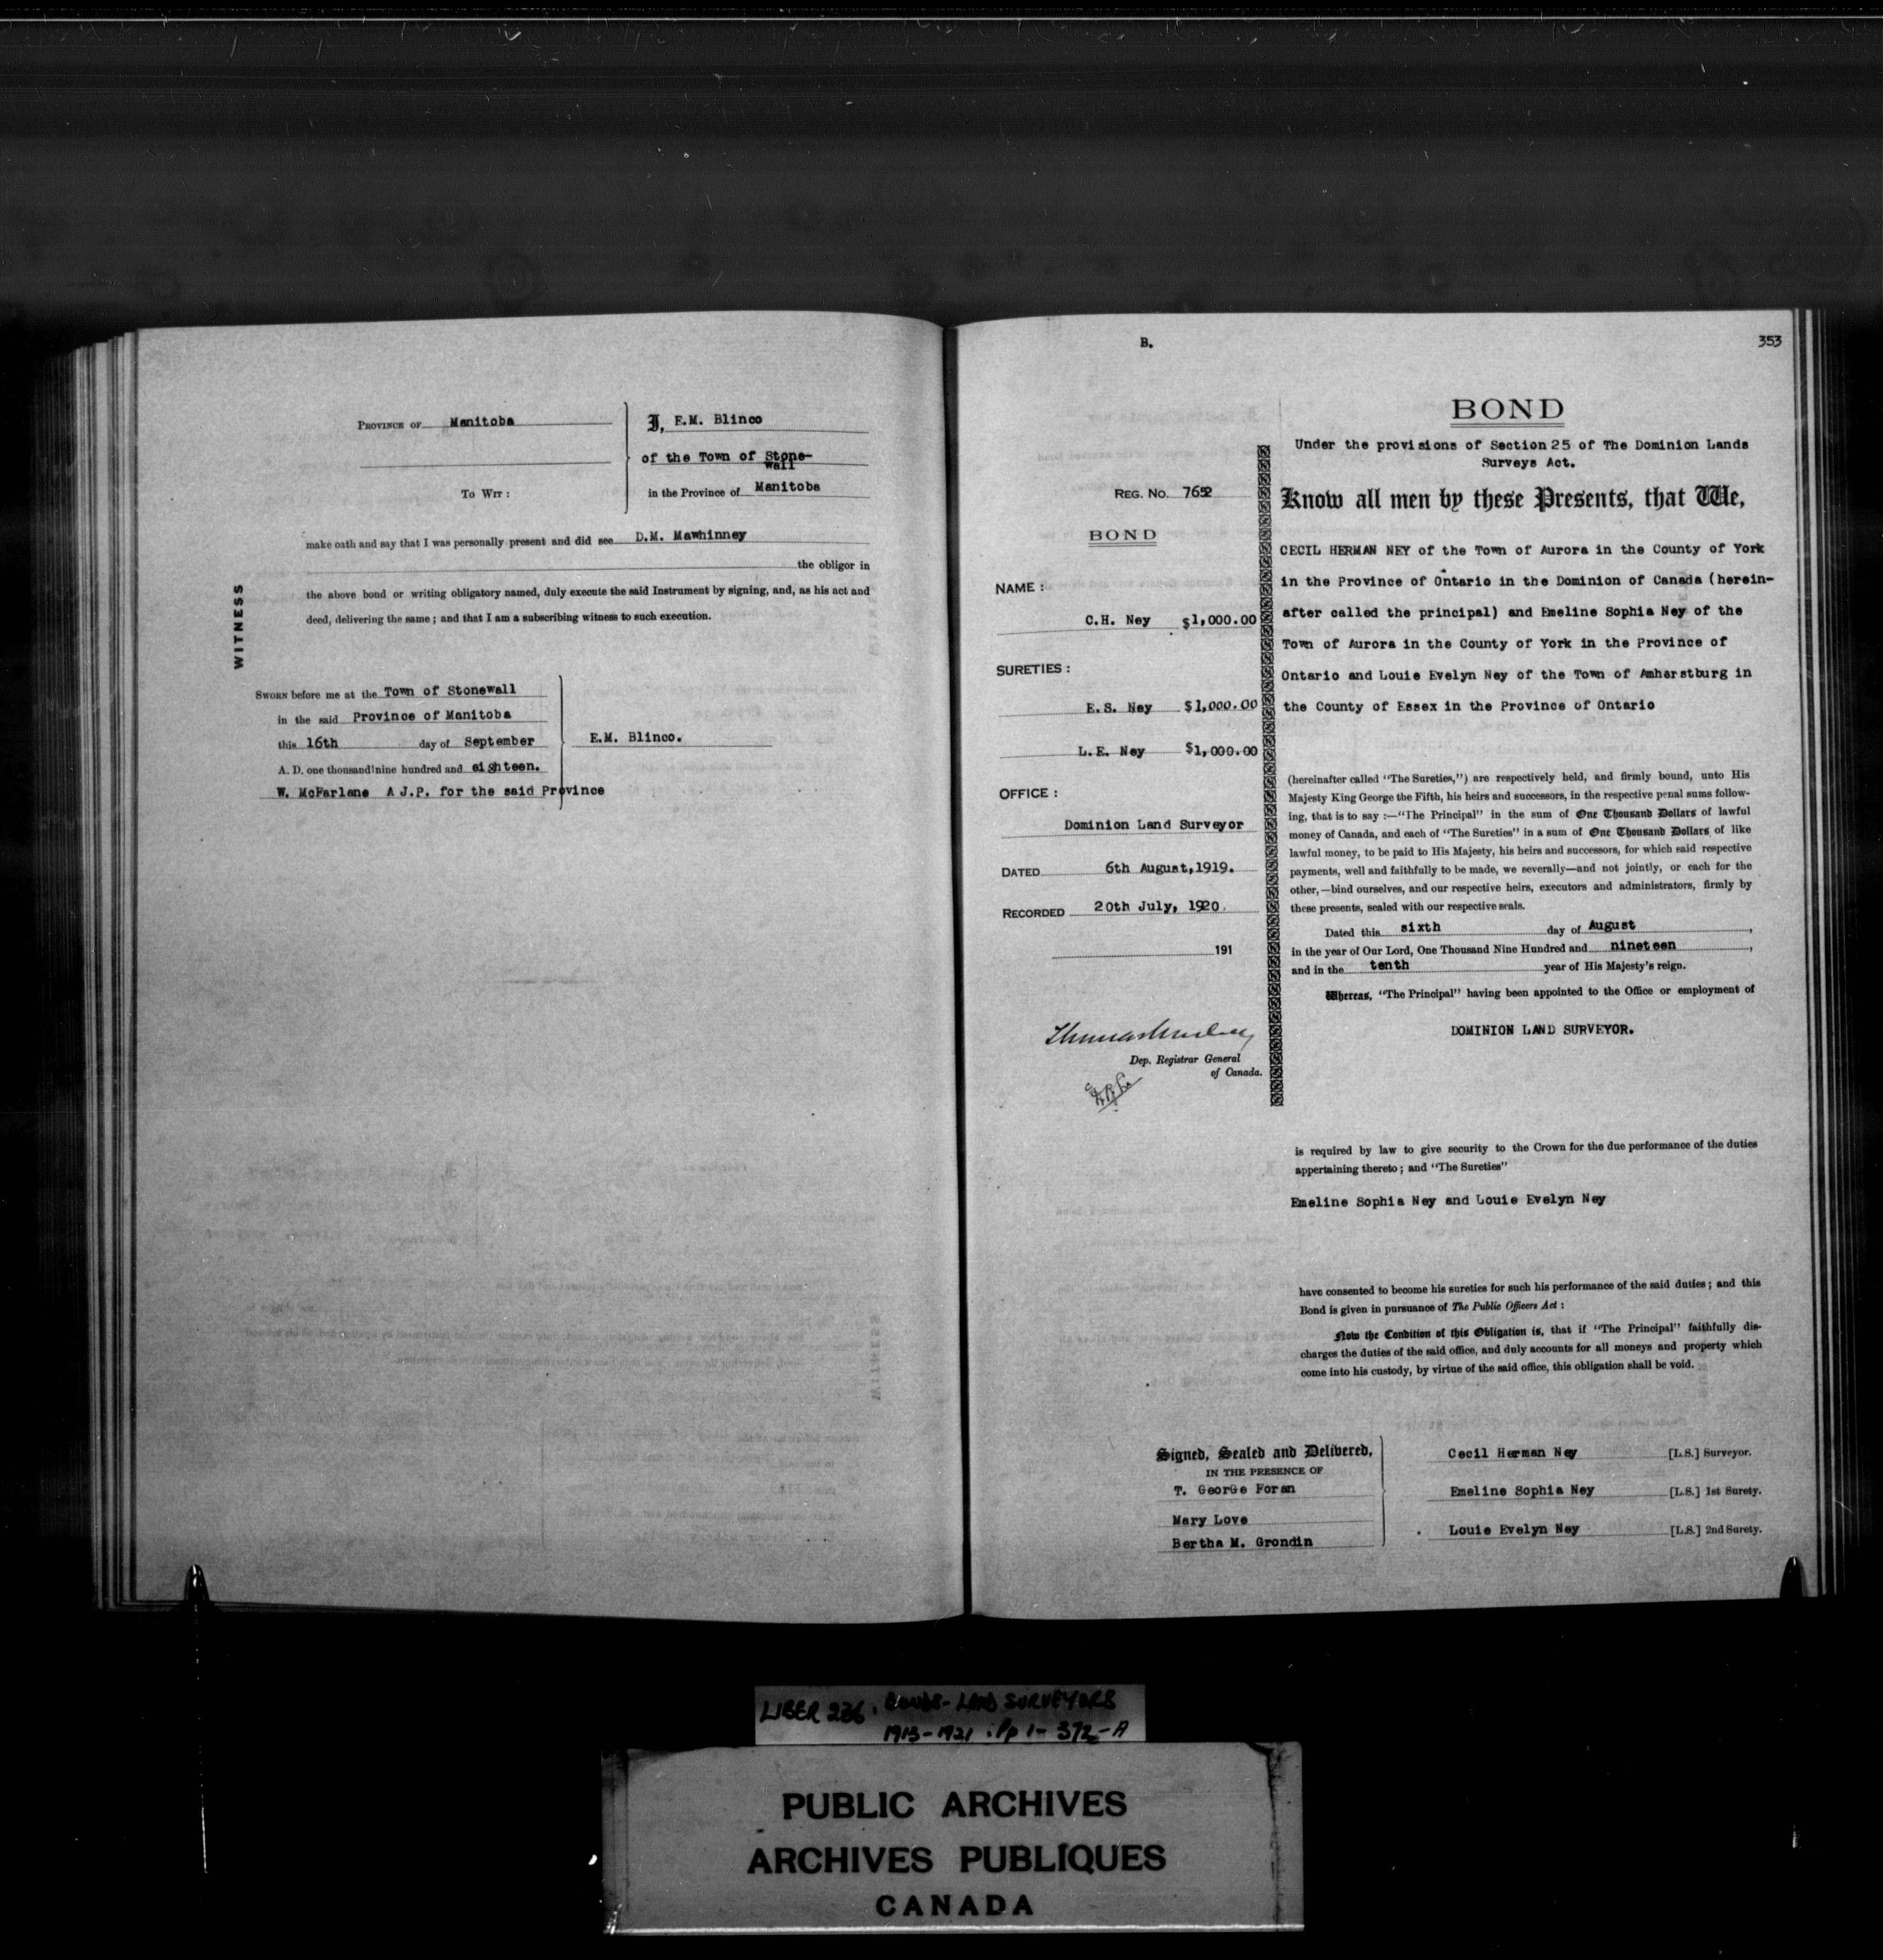 PROVINCE OF Manitoba
TO WIT :
I, E.M. Blinco
of the Town of Stone-
wall
in the Province of Manitoba
make oath and say that I was personally present and did see D.M. Mawhinney
the obligor in
the above bond or writing obligatory named, duly execute the said Instrument by signing, and, as his act and
deed, delivering the same ; and that I am a subscribing witness to such execution.
WITNESS
SWORN before me at the Town of Stonewall
in the said Province of Manitoba
this 16th day of September
A. D. one thousand nine hundred and eighteen.
W. McFarlane A J.P. for the said Province
E.M. Blinco.
B.
353
REG. NO. 762
BOND
NAME :
C.H. Ney $1,000.00
SURETIES :
E.S. Ney $1,000.00
L.E. Ney $1,000.00
OFFICE :
Dominion Land Surveyor
DATED 6th August,1919.
RECORDED 20th July, 1920.
191
Dep. Registrar General
of Canada.
BOND
Under the provisions of Section 25 of The Dominion Lands
Surveys Act.
Know all men by these Presents, that We,
CECIL HERMAN NEY of the Town of Aurora in the County of York
in the Province of Ontario in the Dominion of Canada (herein-
after called the principal) and Emeline Sophia Ney of the
Town of Aurora in the County of York in the Province of
Ontario and Louie Evelyn Ney of the Town of Amherstburg in
the County of Essex in the Province of Ontario
(hereinafter called "The Sureties,") are respectively held, and firmly bound, unto His
Majesty King George the Fifth, his heirs and successors, in the respective penal sums follow-
ing, that is to say :—"The Principal" in the sum of One Thousand Dollars of lawful
money of Canada, and each of "The Sureties" in a sum of One Thousand Dollars of like
lawful money, to be paid to His Majesty, his heirs and successors, for which said respective
payments, well and faithfully to be made, we severally—and not jointly, or each for the
other,—bind ourselves, and our respective heirs, executors and administrators, firmly by
these presents, sealed with our respective seals.
Dated this sixth day of August ,
in the year of Our Lord, One Thousand Nine Hundred and nineteen ,
and in the tenth year of His Majesty's reign.
Whereas, "The Principal" having been appointed to the Office or employment of
DOMINION LAND SURVEYOR.
is required by law to give security to the Crown for the due performance of the duties
appertaining thereto ; and "The Sureties"
Emeline Sophia Ney and Louie Evelyn Ney
have consented to become his sureties for such his performance of the said duties ; and this
Bond is given in pursuance of The Public Officers Act :
Now the Condition of this Obligation is, that if "The Principal" faithfully dis-
charges the duties of the said office, and duly accounts for all moneys and property which
come into his custody, by virtue of the said office, this obligation shall be void.
Signed, Sealed and Delivered,
IN THE PRESENCE OF
T. George Foran
Mary Love
Bertha M. Grondin
Cecil Herman Ney [L.S.] Surveyor.
Emeline Sophia Ney [L.S.] 1st Surety.
Louie Evelyn Ney [L.S.] 2nd Surety.
LIBER 236 : BONDS - LAND SURVEYORS
1913-1921 : Pp 1- 372-A
PUBLIC ARCHIVES
ARCHIVES PUBLIQUES
CANADA